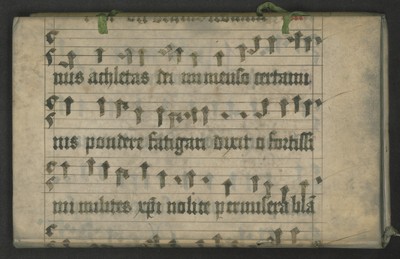 nus athletas dei immenso certami
nis pondere fatigari dixit o fortissi
mi milites xpi nolite per misera blā